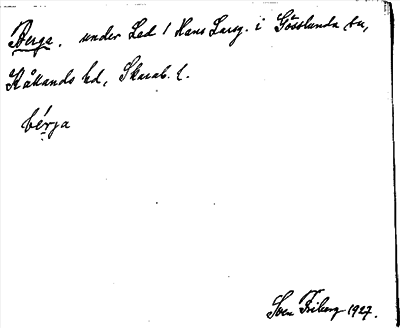 Berga. under Led 1 Hans Larsg. i Gösslunda sn,
Kållands hd, Skarab. l.
bérja
Sven Friberg 1927.